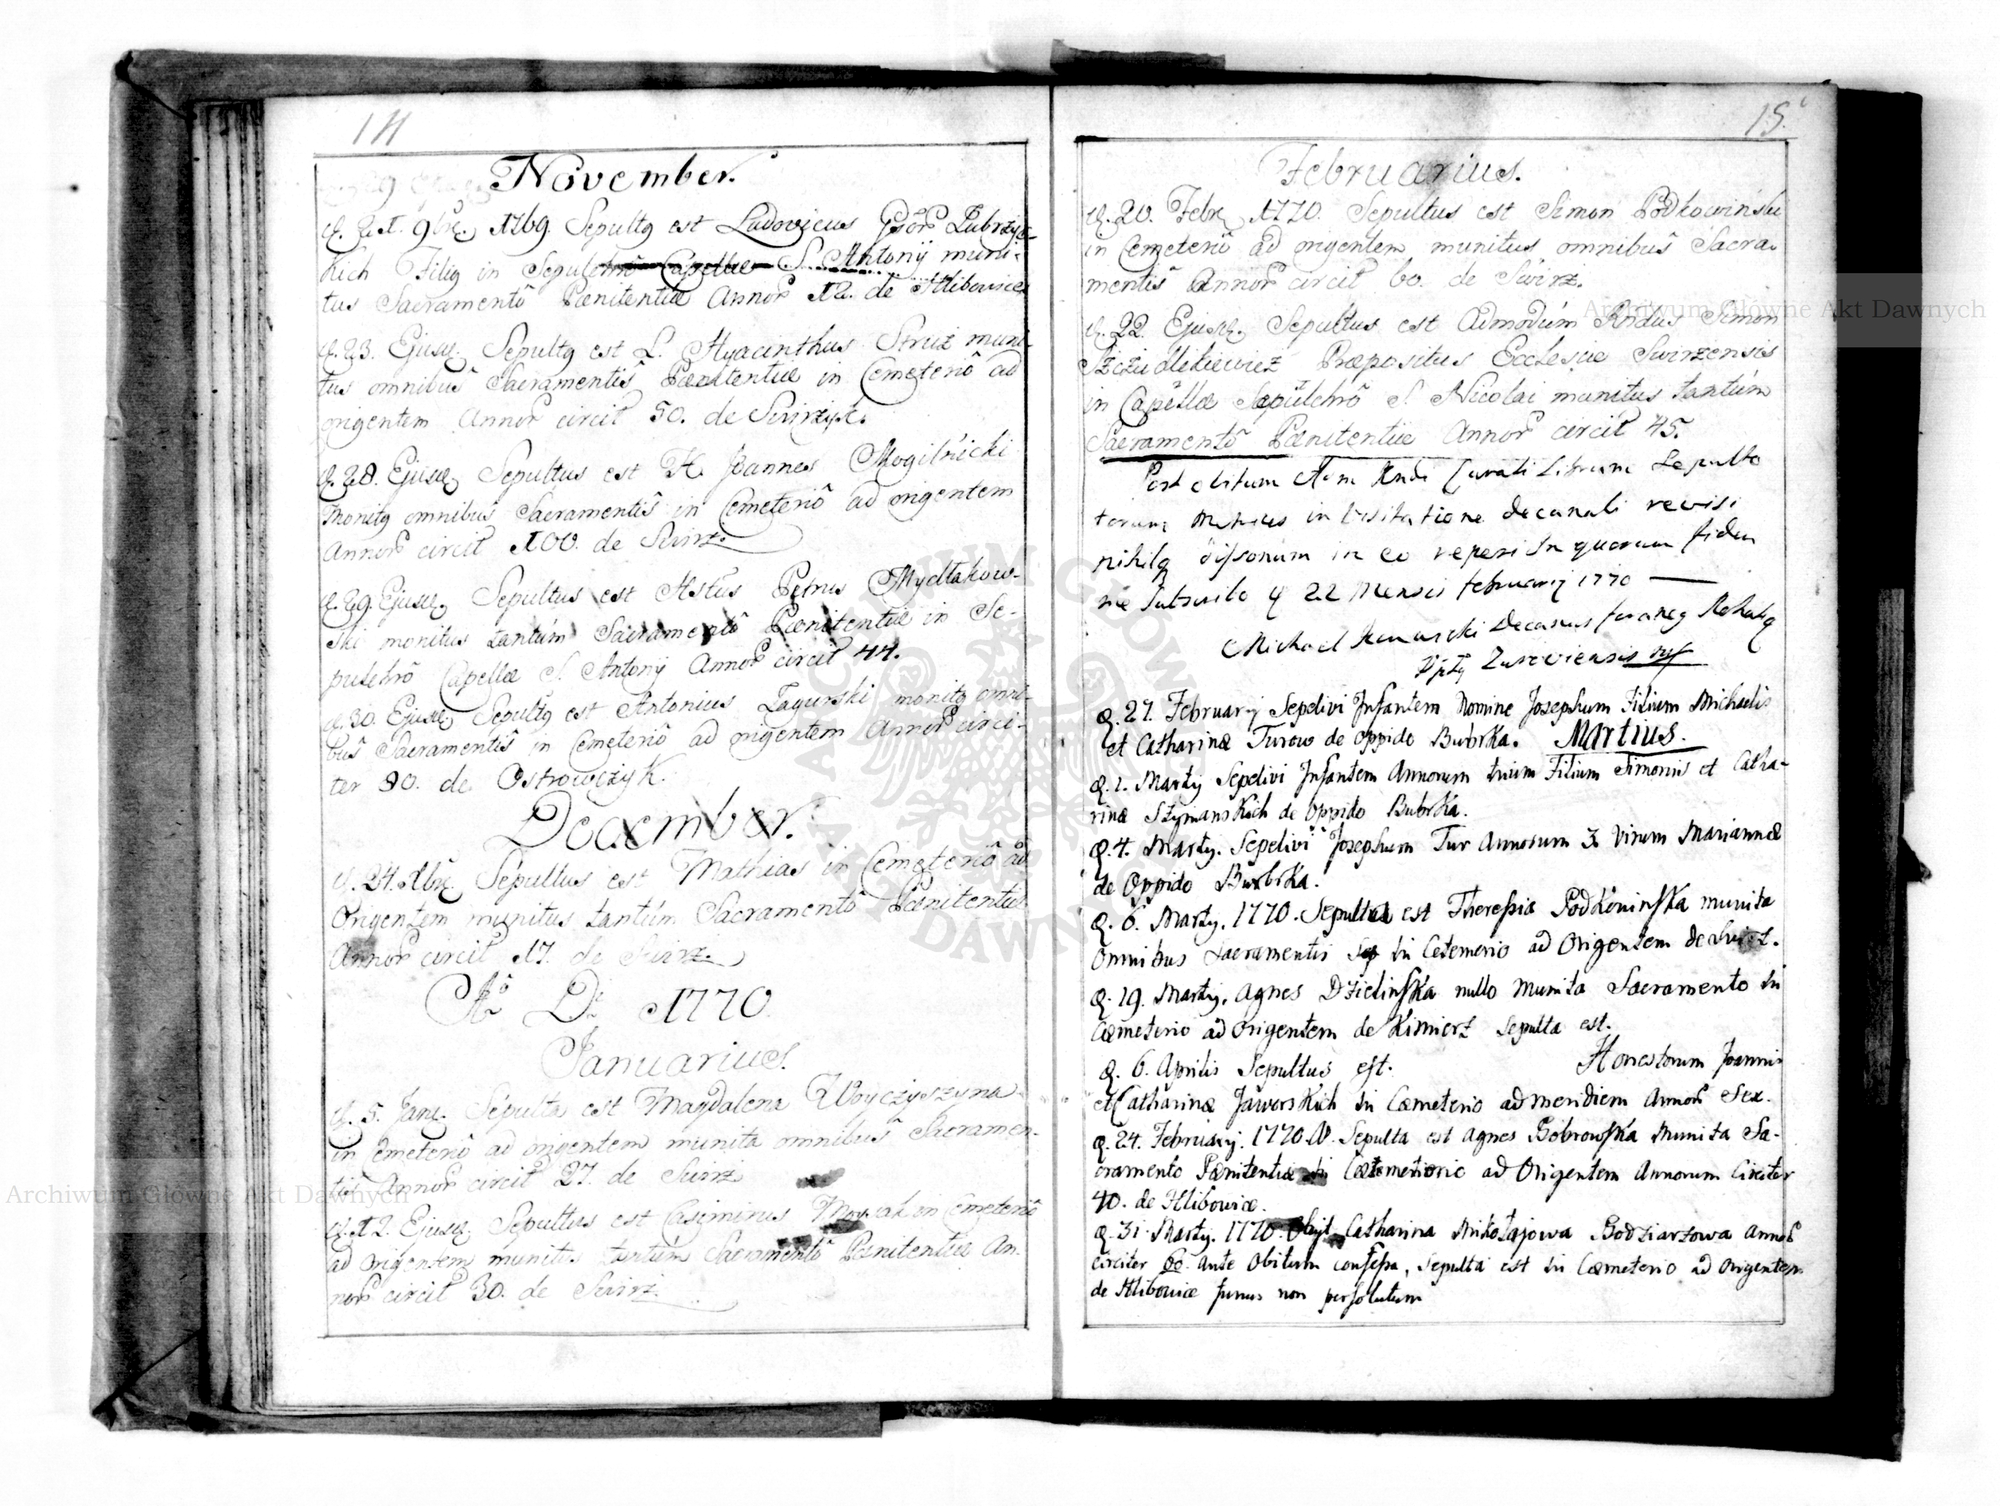 14
November.
d. 21. 9bre. 1769. Sepultg est Ludovicus Gsor Zubrzyc-
kich Filig in Sepulchro Capellae S. Antonij muni-
tus Sacramento Pœnitentiæ Annor 12. de Hlibowice
d. 23. Ejusd. Sepultg est L. Hyacinthus Struz muni-
tus omnibus Sacramentis Pœnitentiæ in Cemeterio ad
origentem Annor circit 50. de Swirzyk.
d. 28. Ejusd. Sepultus est H Joannes Mogilnicki
monitg omnibus Sacramentis in Cemeterio ad origentem
Annor circit 100. de Swirz.
d. 29. Ejusd. Sepultus est Hstus Petrus Mydłakow-
ski monitus tantúm Sacramento Pœnitentiæ in Se-
pulchro Capellæ S. Antonij Annor circit 44.
d. 30. Ejusd. Sepultg est Antonius Zagurski monitg omni-
bus Sacramentis in Cemeterio ad origentem Annor circi-
ter 90. de Ostrowczyk.
December.
d. 24. Xbre. Sepultus est Mathias in Cemeterio ad
Origentem munitus tantúm Sacramento Pœnitentiæ
Annor circit 17. de Swirz.
Ao Di 1770.
Januarius.
d. 5. Janr. Sepulta est Magdalena Woyczyszyna
in Cemeterio ad origentem munita omnibus Sacramen-
tis Annor circit 27. de Swirz
d. 12. Ejusd. Sepultus est Casimirus Nowak in Cemeterio
ad origentem munitus tantúm Sacramento Pœnitentiæ An-
nor circit 30. de Swirz.
15.
Februarius.
d. 20. Febr. 1770. Sepultus est Simon Podkowinski
in Cemeterio ad origentem munitus omnibus Sacra-
mentis Annor circit 60. de Swirz.
d. 22 Ejusd. Sepultus est Admodúm Rndus Simon
Szczudlikiewicz Præpositus Ecclesiæ Swirzensis
in Capellæ Sepulchro S. Nicolai munitus tantúm
Sacramento Pœnitentiæ Annor circit 45.
Post obitum Adm Rndi Curati Librum Sepulto
torum Metrices in Visitatione decanali revisi
nihilq dissonum in eo reperi In quorum fidem
me subscribo d 22 Mensis february 1770
Michael Decanus foraneg
Zurowiensis mp
D. 27. February Sepelivi Infantem Nomine Josephum Filium Michaelis
et Catharinæ Turow de oppido Bubrka. Martius.
D. 1. Martij Sepelivi Infantem Annorum trium Filium Simonis et Catha-
rinæ Szymanskich de Oppido Bubrka.
D. 4. Martij. Sepelivi Josephum Tur Annorum 3 Virum Mariannæ
de Oppido Bubrka.
D. 6. Martij. 1770. Sepulta est Theresia Podkoninska munita
Omnibus Sacramentis Sep in Cetemerio ad Origentem de Swirz.
D. 19. Martij. Agnes Dzielinska nullo Munita Sacramento in
Cœmeterio ad Origentem de Kimierz Sepulta est.
D. 6. Aprilis Sepultus est. Honestorum Joannis
et Catharinæ Jaworskich in Cœmeterio ad meridiem Annor Sex.
D. 24. February. 1770. N. Sepulta est Agnes Bobrowska Munita Sa-
cramento Pœnitentiæ in Cœtemeriorio ad Origentem Annorum Circiter
40. de Hlibowice.
D. 31. Martij. 1770. Obijt Catharina Mikołajowa Bodziarzowa Annor
circiter 60. Ante Obitum confessa, Sepulta est in Cœmeterio ad Origentem
de Hlibowice funus non persolutum
Archiwum Główne Akt Dawnych
Archiwum Główne Akt Dawnych
ARCHIWUM GŁÓWNE AKT DAWNYCH